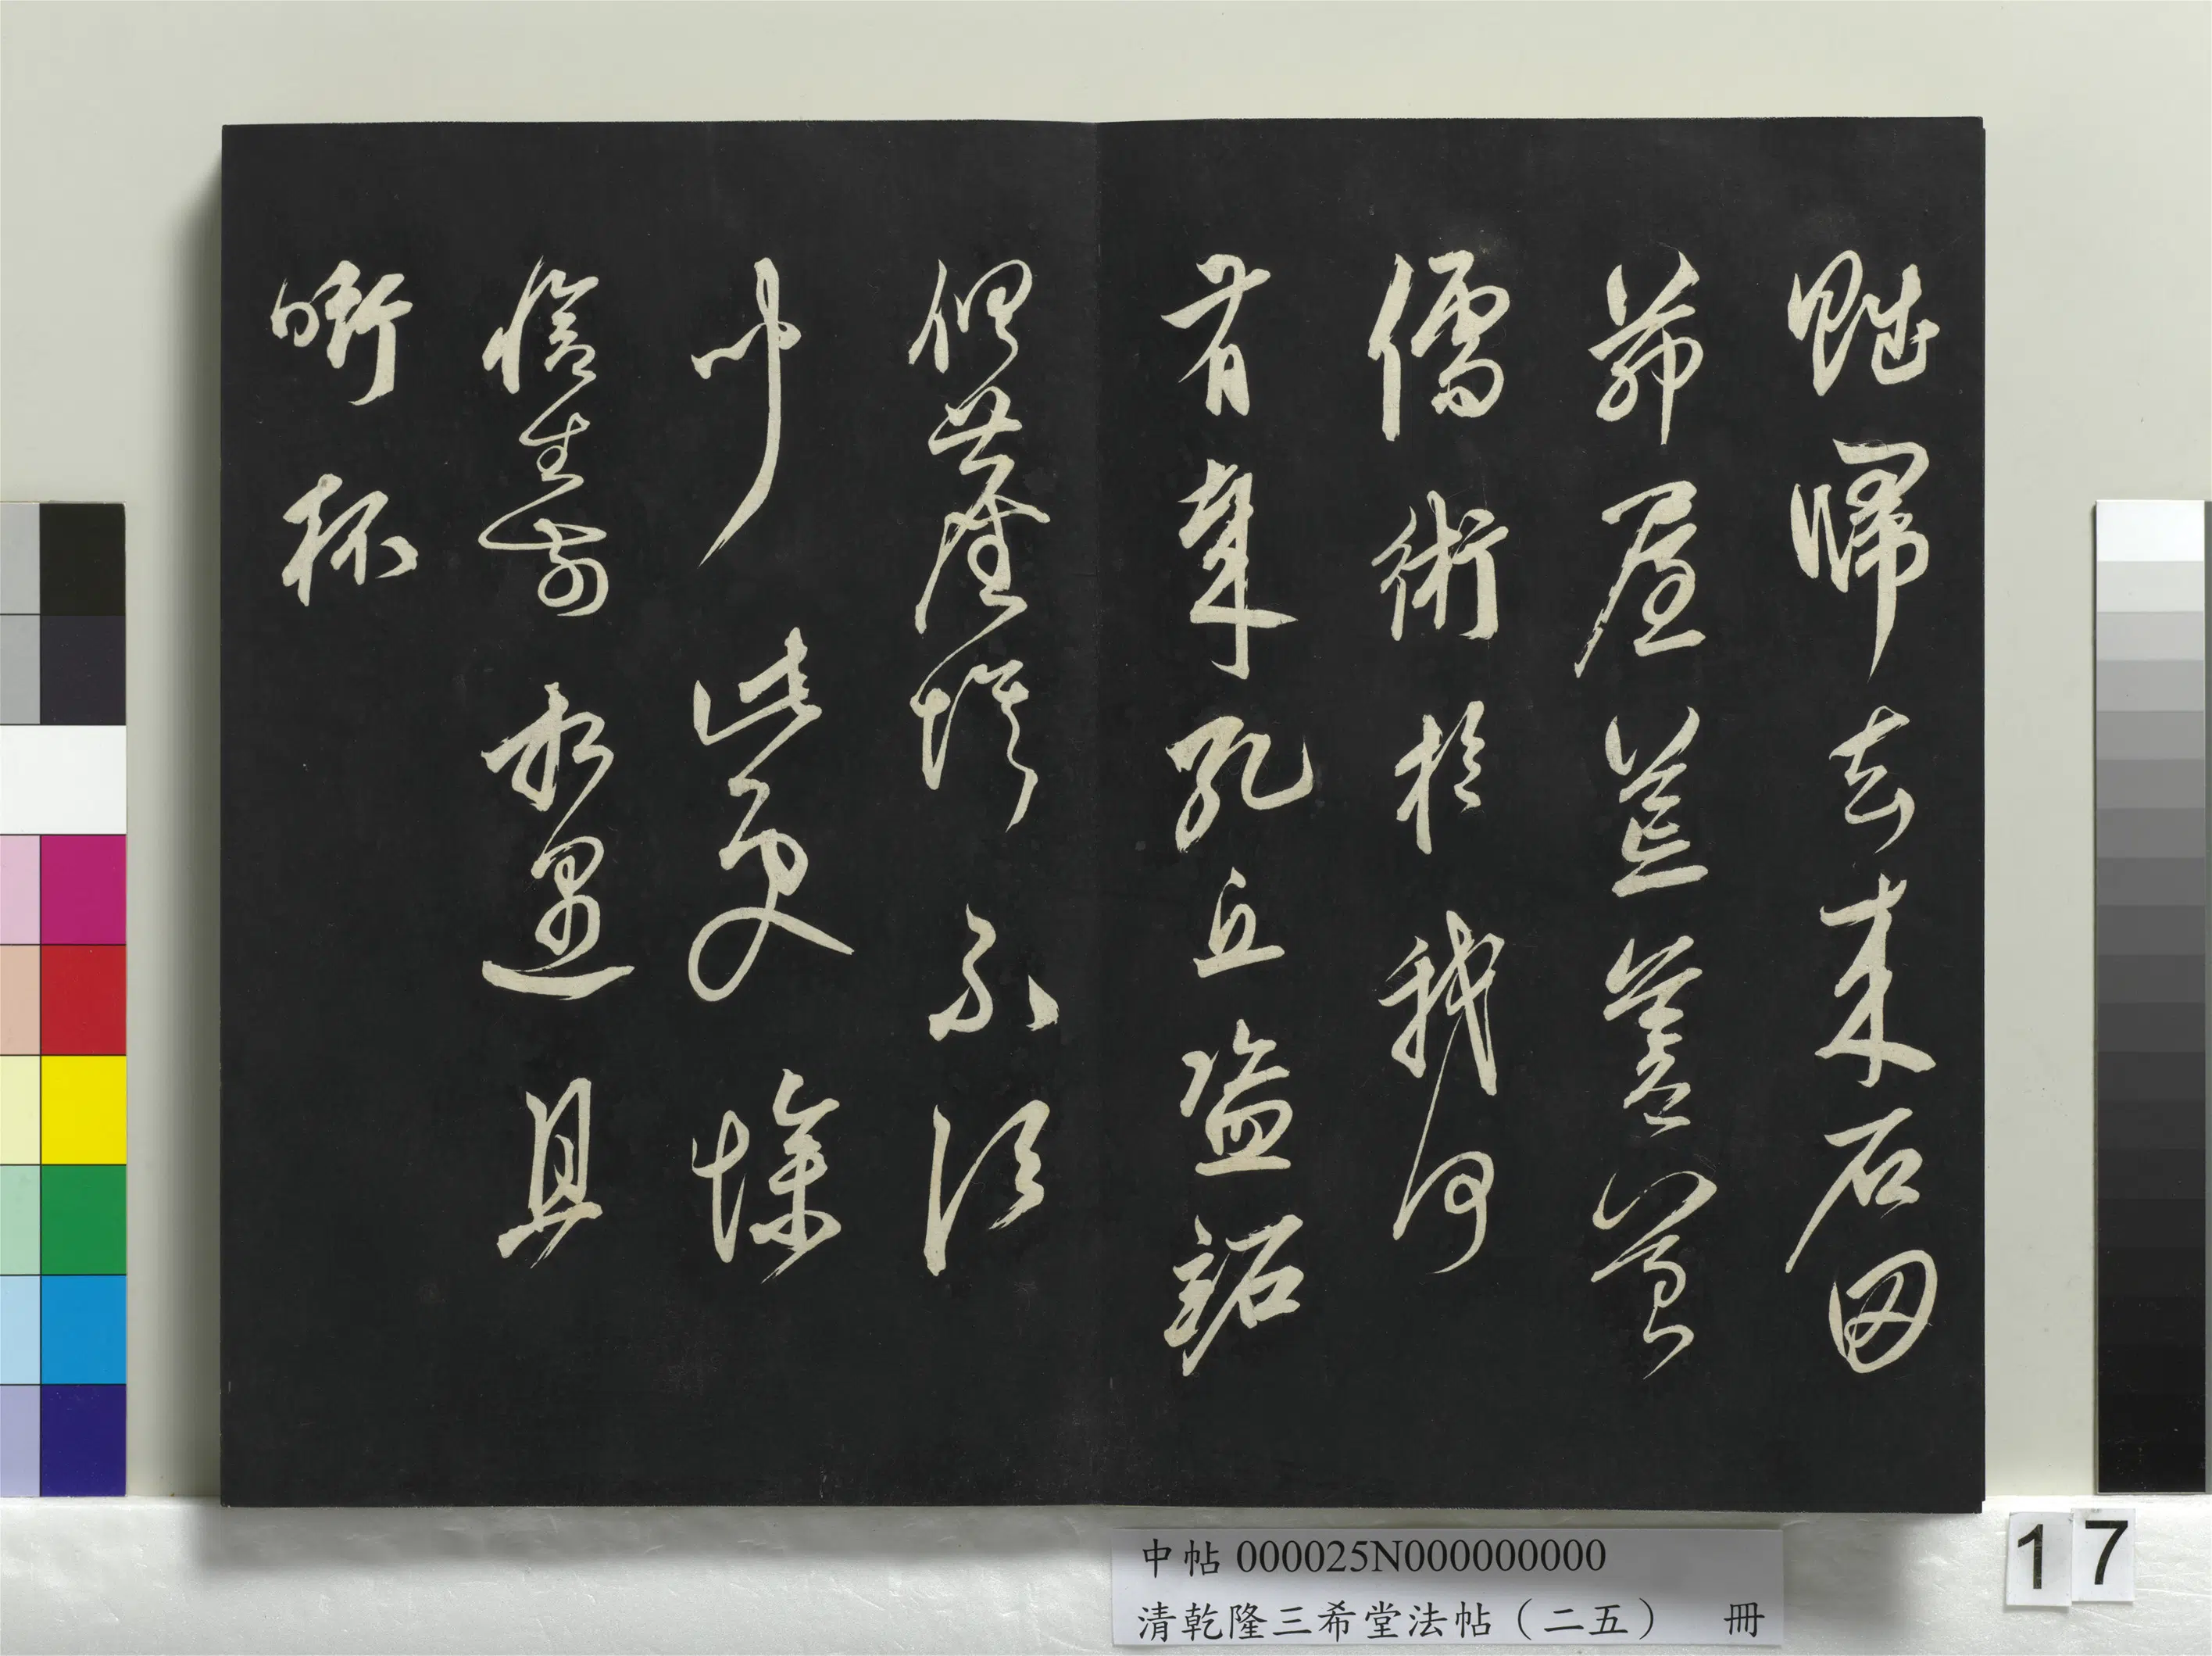 賦歸去來石田
茅屋荒蒼苔
儒術於我何
有哉孔丘盜跖
俱塵埃不須
聞此更慘
愴生前相遇且
銜杯
中帖 000025N000000000
清乾隆三希堂法帖（二五） 冊
17